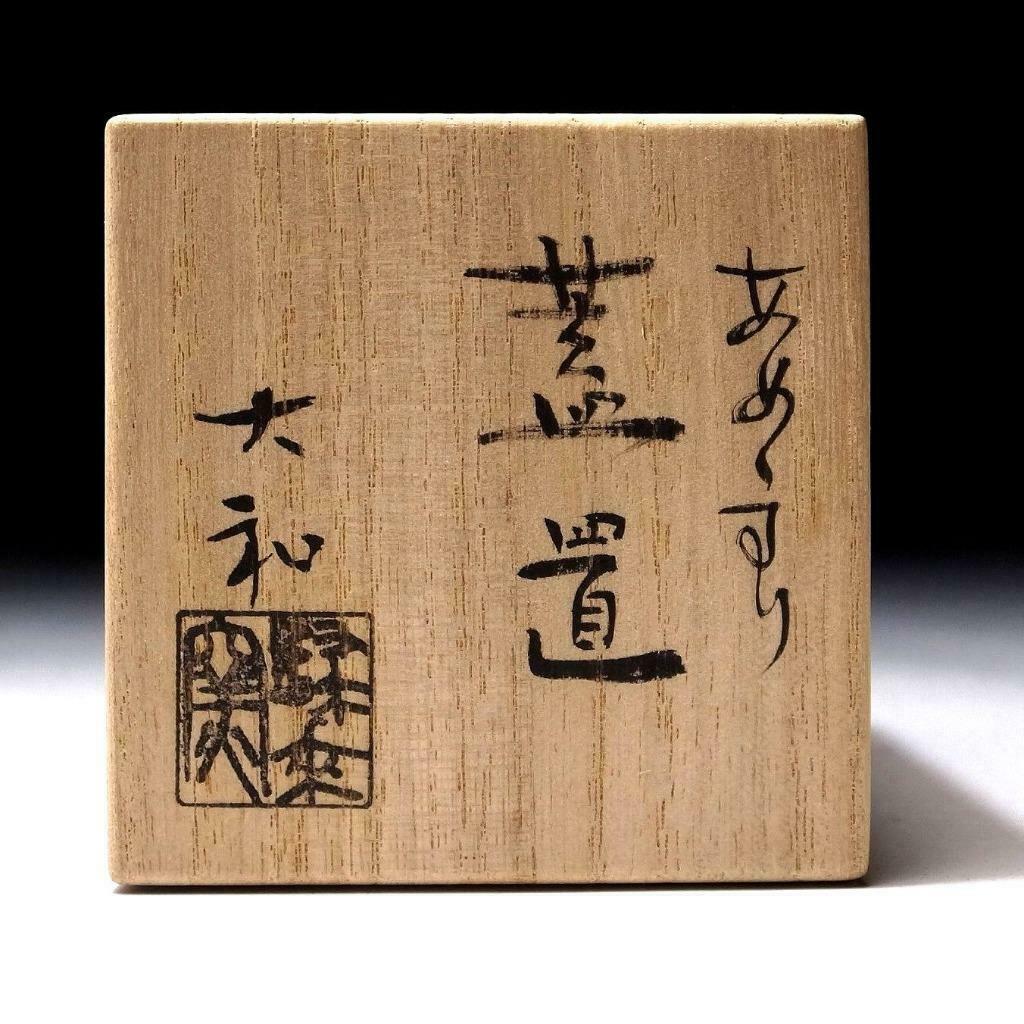 あめくすり
蓋置
大和